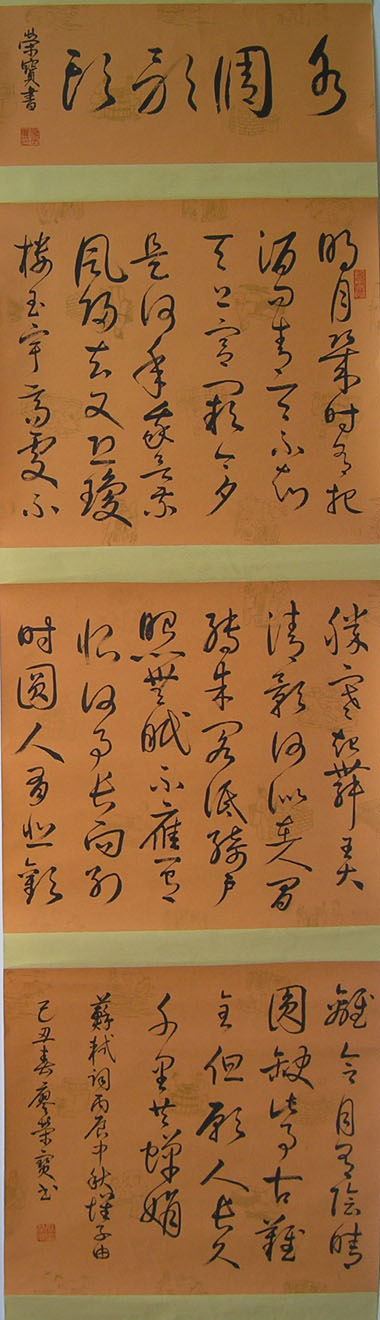 水調歌頭
榮寶書
明月幾时有把
酒問青天不知
天上宮闕今夕
是何年我欲乘
風歸去又恐瓊
樓玉宇高處不
勝寒起舞弄
清影何似在人間
轉朱閣低綺戶
照無眠不應有
恨何事長向别
时圓人有悲歡
離合月有陰晴
圓缺此事古難
全但願人長久
千里共嬋娟
蘇軾詞丙辰中秋懷子由
己丑春廖榮寶书